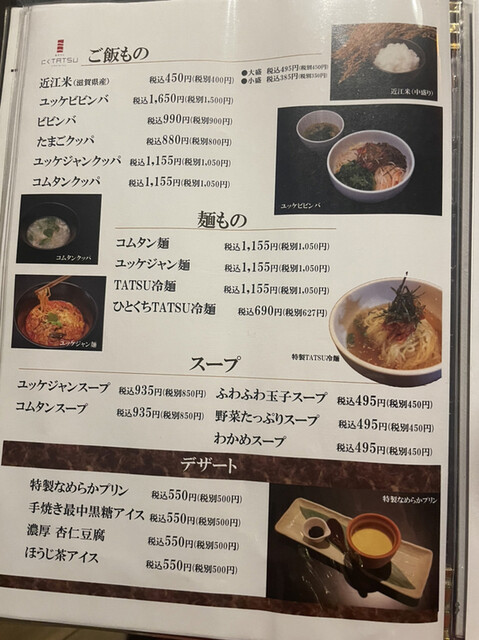 にくTATSU
ご飯もの
近江米(滋賀県産) 税込450円(税別400円)
●大盛 税込495円(税別450円)
●小盛 税込385円(税別350円)
近江米(中盛り)
ユッケビビンバ 税込1,650円(税別1,500円)
ビビンバ 税込990円(税別900円)
たまごクッパ 税込880円(税別800円)
ユッケジャンクッパ 税込1,155円(税別1,050円)
コムタンクッパ 税込1,155円(税別1,050円)
ユッケビビンバ
麺もの
コムタンクッパ
コムタン麺 税込1,155円(税別1,050円)
ユッケジャン麺 税込1,155円(税別1,050円)
TATSU冷麺 税込1,155円(税別1,050円)
ひとくちTATSU冷麺 税込690円(税別627円)
ユッケジャン麺
特製TATSU冷麺
スープ
ユッケジャンスープ 税込935円(税別850円)
コムタンスープ 税込935円(税別850円)
ふわふわ玉子スープ 税込495円(税別450円)
野菜たっぷりスープ 税込495円(税別450円)
わかめスープ 税込495円(税別450円)
デザート
特製なめらかプリン 税込550円(税別500円)
手焼き最中黒糖アイス 税込550円(税別500円)
濃厚 杏仁豆腐 税込550円(税別500円)
ほうじ茶アイス 税込550円(税別500円)
特製なめらかプリン